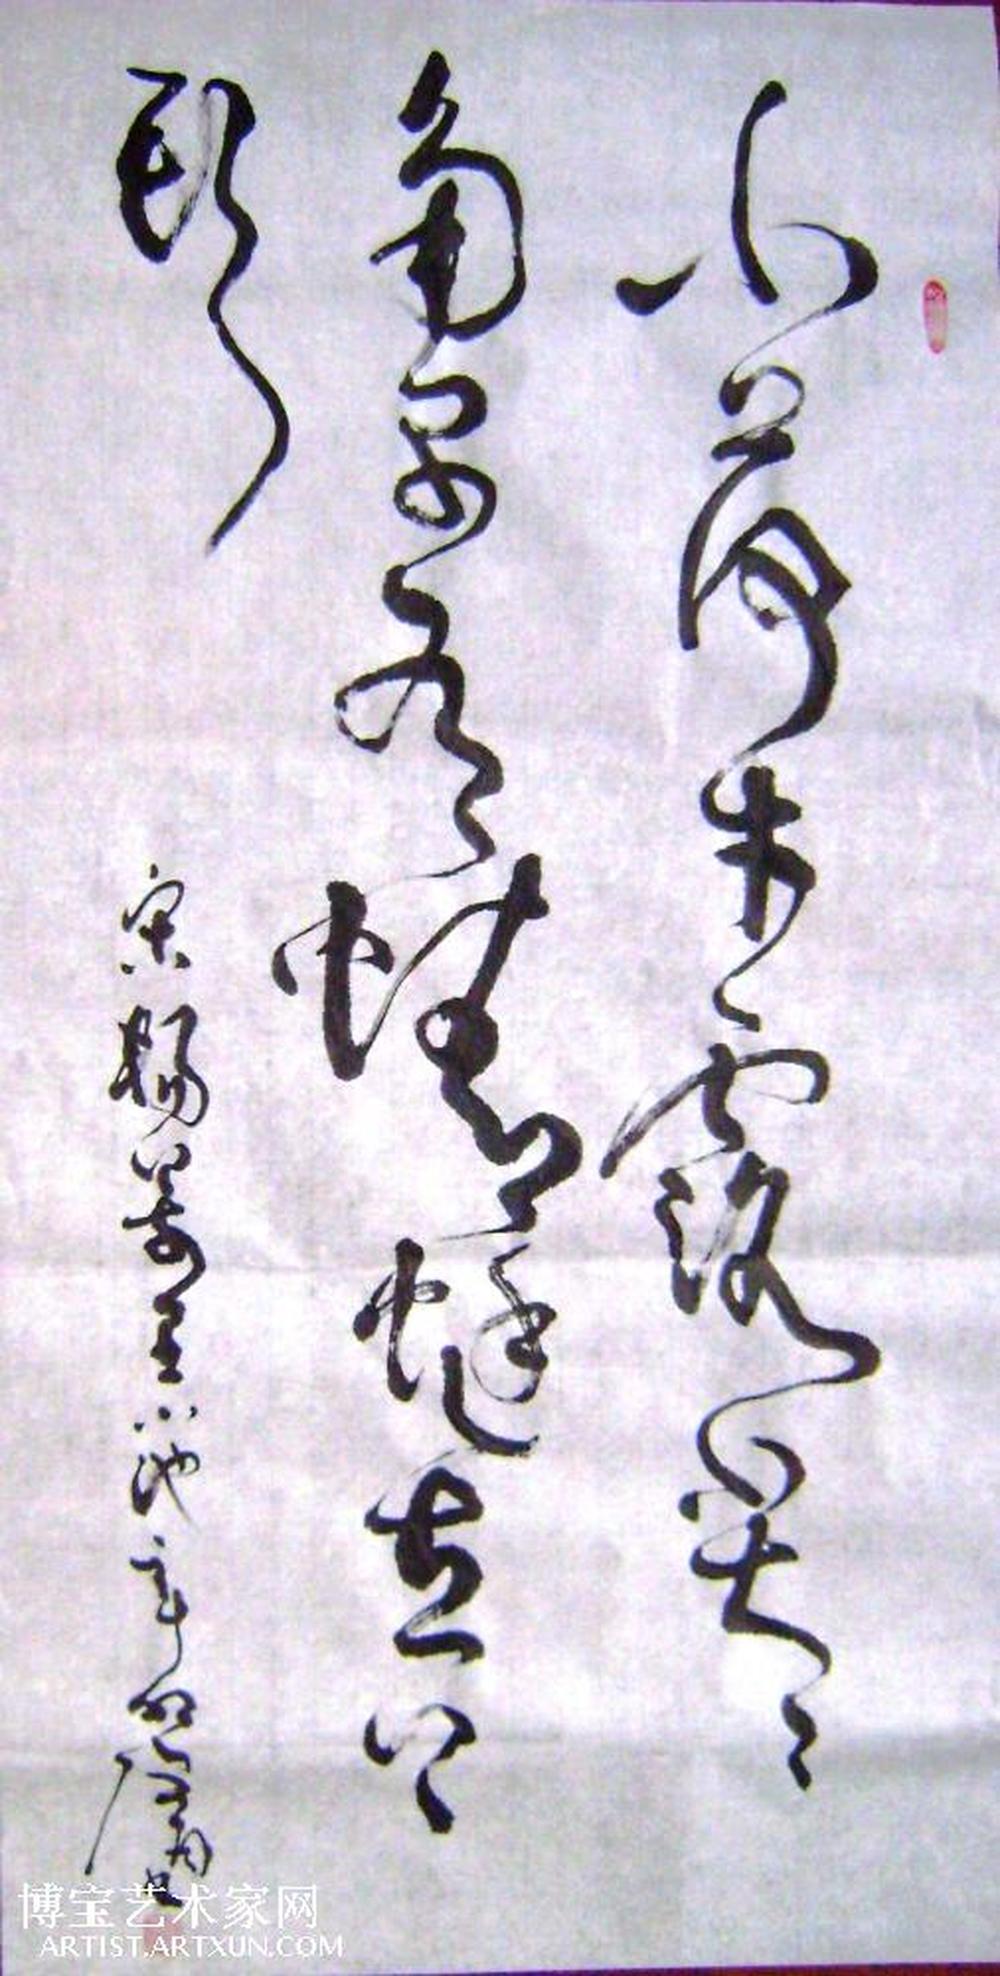 小荷才露尖尖
角早有蜻蜓立上
頭
宋楊萬里小池辛卯書
博宝艺术家网
ARTIST.ARTXUN.COM